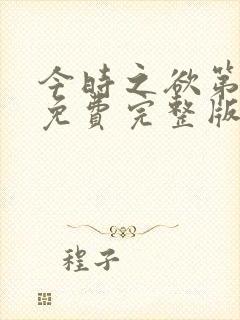 今時之欲第
免費完整版
程子